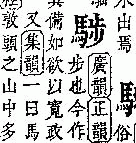 水出焉
俗
廣韻正韻
步也今作
又集韻一曰馬
備如欲以寬
敦頭之山中多